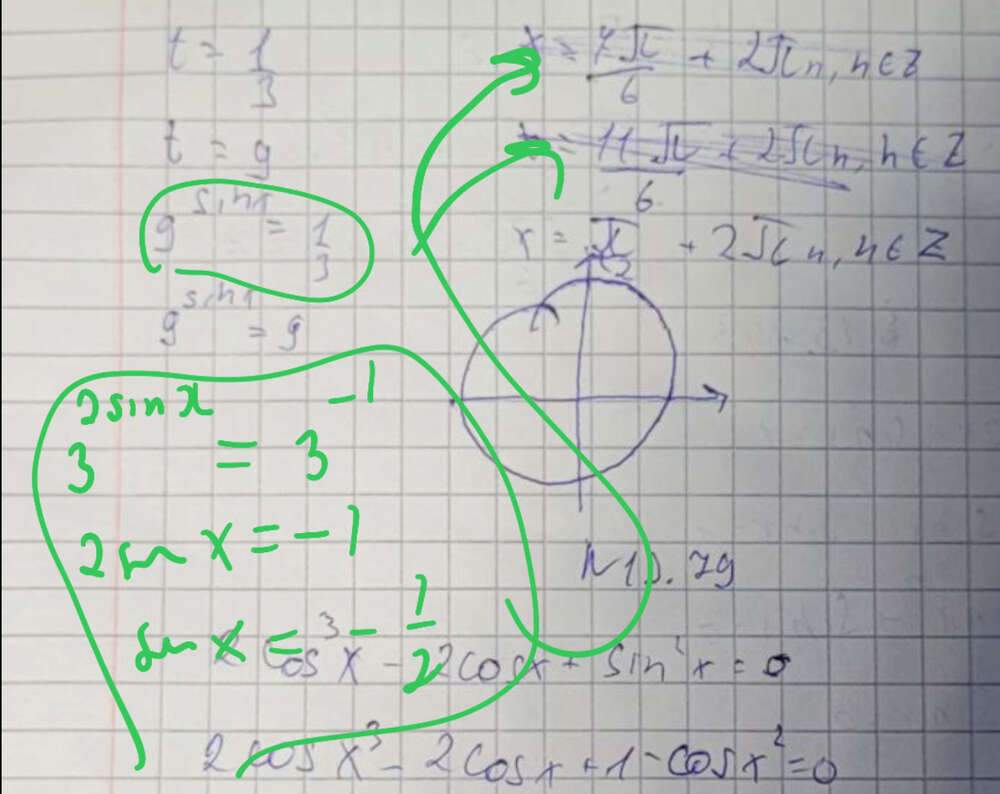 t = 1/3
t = 9
9^sin x = 1/3
9^sin x = 9
3^2sin x = 3^-1
2 sin x = -1
sin x = -1/2
x = 7π/6 + 2πn, n ∈ Z
x = 11π/6 + 2πn, n ∈ Z
x = π/2 + 2πn, n ∈ Z
N10.79
2cos³x - 2cosx + sin²x = 0
2cosx³ - 2cosx + 1 - cosx² = 0